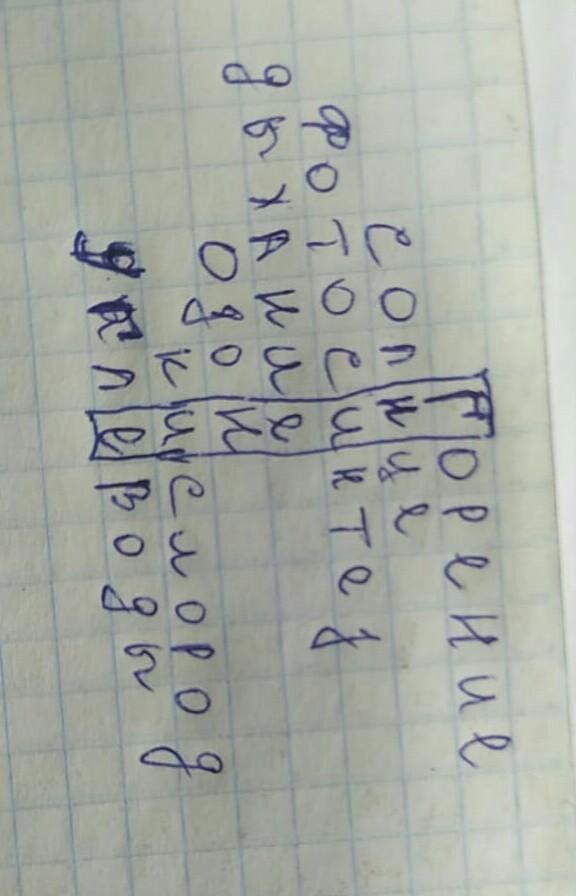 Горение
солнце
фотосинтез
дыхание
Озон
кислород
углеводы